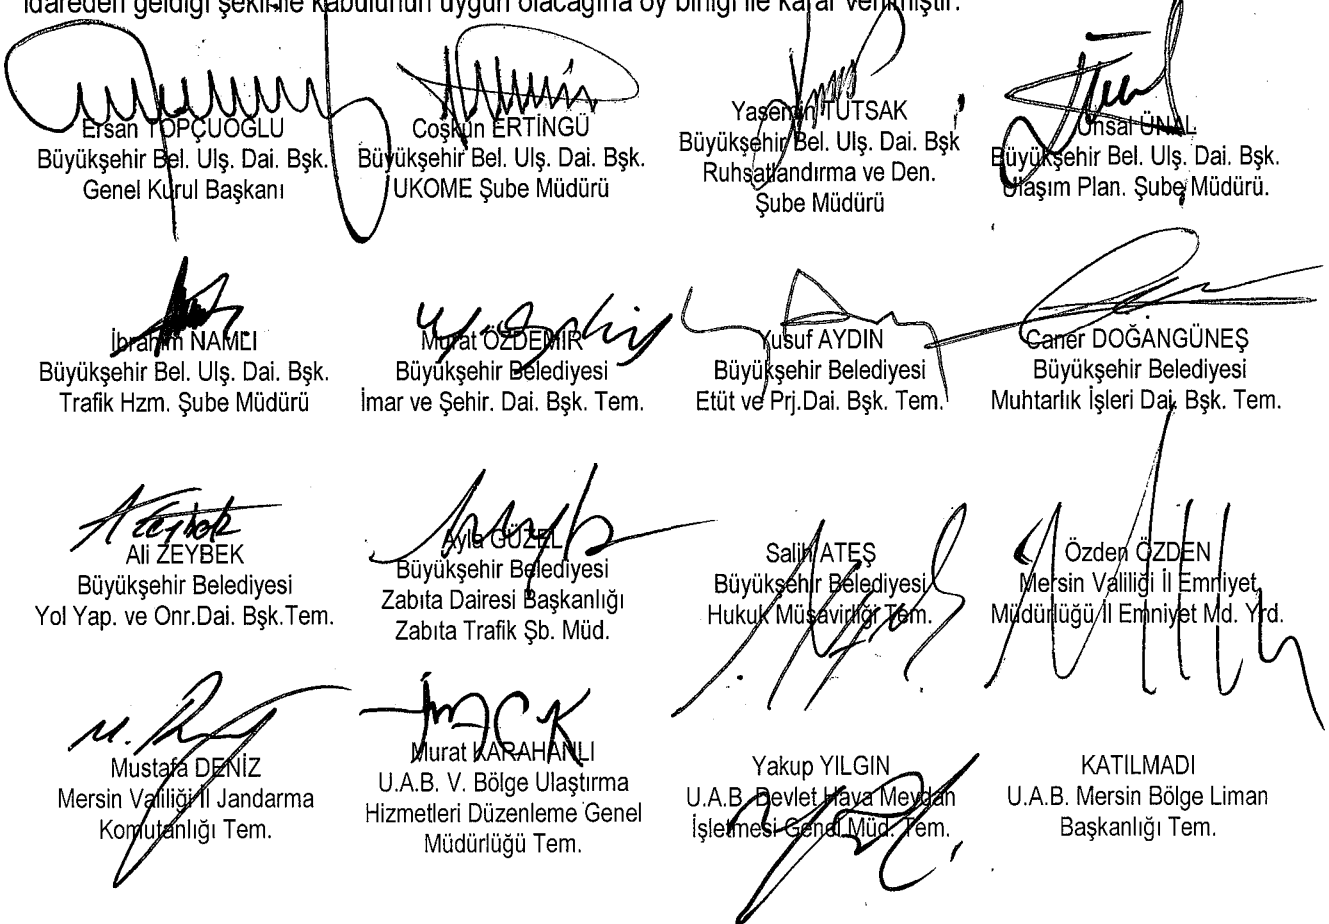 idareden geldiği şekil ile kabulünün uygun olacağına oy birliği ile karar verilmiştir.
Ersan TOPÇUOĞLU
Büyükşehir Bel. Ulş. Dai. Bşk.
Genel Kurul Başkanı
Coşkun ERTİNGÜ
Büyükşehir Bel. Ulş. Dai. Bşk.
UKOME Şube Müdürü
Yasemin TUTSAK
Büyükşehir Bel. Ulş. Dai. Bşk
Ruhsatlandırma ve Den.
Şube Müdürü
Ünsal ÜNAL
Büyükşehir Bel. Ulş. Dai. Bşk.
Ulaşım Plan. Şube Müdürü.
İbrahim NAMLI
Büyükşehir Bel. Ulş. Dai. Bşk.
Trafik Hzm. Şube Müdürü
Murat ÖZDEMİR
Büyükşehir Belediyesi
İmar ve Şehir. Dai. Bşk. Tem.
Yusuf AYDIN
Büyükşehir Belediyesi
Etüt ve Prj.Dai. Bşk. Tem.
Caner DOĞANGÜNEŞ
Büyükşehir Belediyesi
Muhtarlık İşleri Dai. Bşk. Tem.
A Zeybek
Ali ZEYBEK
Büyükşehir Belediyesi
Yol Yap. ve Onr.Dai. Bşk.Tem.
Ayla GÜZEL
Büyükşehir Belediyesi
Zabıta Dairesi Başkanlığı
Zabıta Trafik Şb. Müd.
Salih ATEŞ
Büyükşehir Belediyesi
Hukuk Müşavirliği Tem.
Özden ÖZDEN
Mersin Valiliği İl Emniyet
Müdürlüğü İl Emniyet Md. Yrd.
Mustafa DENİZ
Mersin Valiliği İl Jandarma
Komutanlığı Tem.
Murat KARAHANLI
U.A.B. V. Bölge Ulaştırma
Hizmetleri Düzenleme Genel
Müdürlüğü Tem.
Yakup YILGIN
U.A.B. Devlet Hava Meydan
İşletmesi Genel Müd. Tem.
KATILMADI
U.A.B. Mersin Bölge Liman
Başkanlığı Tem.